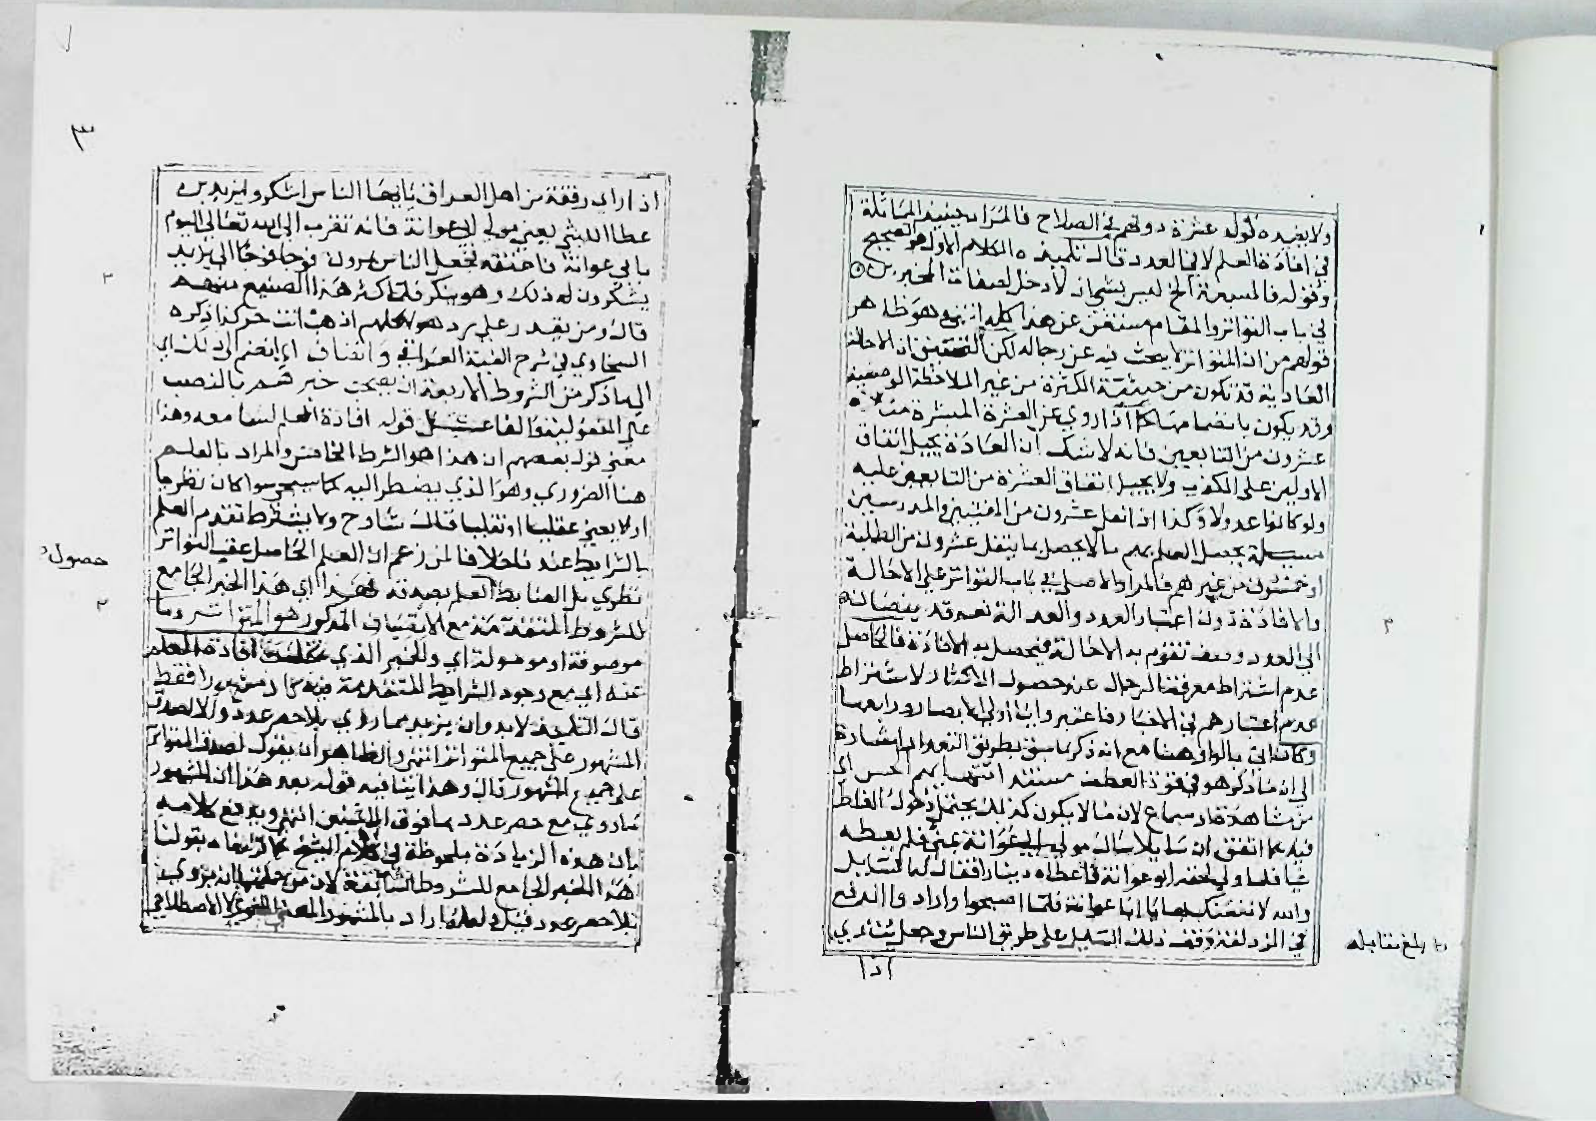 ولا يفيده قوله عشرة دونهم في الصلاح فالمراد حينئذ المماثلة
في افادة العلم لا في العدد قال تلميذه الكلام الاول هو الصحيح
وقوله فالمسبعة الخ ليس بشي اذ لا دخل لصفات المخبرين
في باب التواتر والمقام مستغن عن هذا كله انتهى وهو ظاهر
قولهم من ان المتواتر لا يبحث فيه عن رجاله لكن التحقيق ان الاحالة
العادية قد تكون من حيثية الكثرة من غير الملاحظة الوصفية
وقد يكون بانضمامها كما اذا روي عن العشرة المبشرة مثلا
عشرون من التابعين فانه لا شك ان العادة تحيل اتفاق
الاولين على الكذب ولا تحيل اتفاق العشرة من التابعين عليه
ولو كانوا عدولا وكذا اذا نقل عشرون من المفتيين والمدرسين
مسئلة يحصل العلم بهم ما لا يحصل بما ينقل عشرون من الطلبة
او خمسون من غيرهم فالمدار الاصلي في باب التواتر على الاحالة
والافادة دون اعتبار العدد والعدالة نعم قد ينضافان
الى العدد وصف تقوم به الاحالة فيحصل به الافادة فالحاصل
عدم اشتراط معرفة الرجال عند حصول الاكثار لا اشتراط
عدم اعتبارهم في الاخبار فاعتبروا يا اولي الابصار ورابعها
وكان اتى بالواو هنا مع انه ذكر ما سبق بطريق التعداد اشارة
الى ان ما ذكر هو في قوة العطف مستند انتهايهم الحس اي
من مشاهدة او سماع لان ما لا يكون كذلك يحتمل دخول الغلط
فيه كما اتفق ان سايلا سال مولى ابي عوانة بمنى فلم يعطه
شيا فلما ولى لحقه ابو عوانة فاعطاه دينارا فقال له السايل
والله لانفعنك بها يا ابا عوانة فلما اصبحوا وارادوا الدفع
في المزدلفة وقف ذلك السايل على طريق الناس وجعل ينادي
اذا
بلغ مقابلة
٣
اذا راي رفقة من اهل العراق يا ايها الناس اشكروا يزيد بن
عطا الليثي يعني مولى ابي عوانة فانه تقرب الى الله تعالى اليوم
بابي عوانة فاعتقه فجعل الناس يمرون فوجا فوجا الى يزيد
يشكرون له ذلك وهو ينكر فلما كثر هذا الصنيع منهم
قال ومن يقدر على رد هولاء كلهم اذهب انت حر كذا ذكره
السخاوي في شرح الفية العراقي وانضاف اي انضم الى ذلك اي
الى ما ذكر من الشروط الاربعة ان يصحب خبرهم بالنصب
على المفعولية والفاعل قوله افادة العلم لسامعه وهذا
معنى قول بعضهم ان هذا هو الشرط الخامس والمراد بالعلم
هنا الضروري وهو الذي يضطر اليه كما سيجي سوا كان نظريا
اولا يعني عقليا او نقليا قال شارح ولا يشترط تقدم العلم
بالشرايط عندنا خلافا لمن زعم ان العلم الحاصل عقب التواتر
نظري بل الضابط العلم بصدقه فهذا اي هذا الخبر الجامع
للشروط المتقدمة مع الانضياف المذكور هو المتواتر وما
موصوفة او موصولة اي والخبر الذي تخلفت افادة العلم
حصول
عنه اي مع وجود الشرايط المتقدمة فيه كان مشهورا فقط
قال التلميذ لا بد وان يزيد مما روي بلا حصر عدد والا لصدق
المشهور على جميع المتواتر انتهى والظاهر ان يقول لصدق المتواتر
على جميع المشهور قال وهذا ينافيه قوله بعد هذا ان المشهور
ما روي مع حصر عدد بما فوق الاثنين انتهى ويدفع كلامه
بان هذه الزيادة ملحوظة في كلام الشيخ كما قررناه بقولنا
هذا الخبر الجامع للشروط السابقة لان من جملتها ان يروى
بلا حصر عدد قيل ولعله اراد بالمشهور المعنى اللغوي لا الاصطلاحي